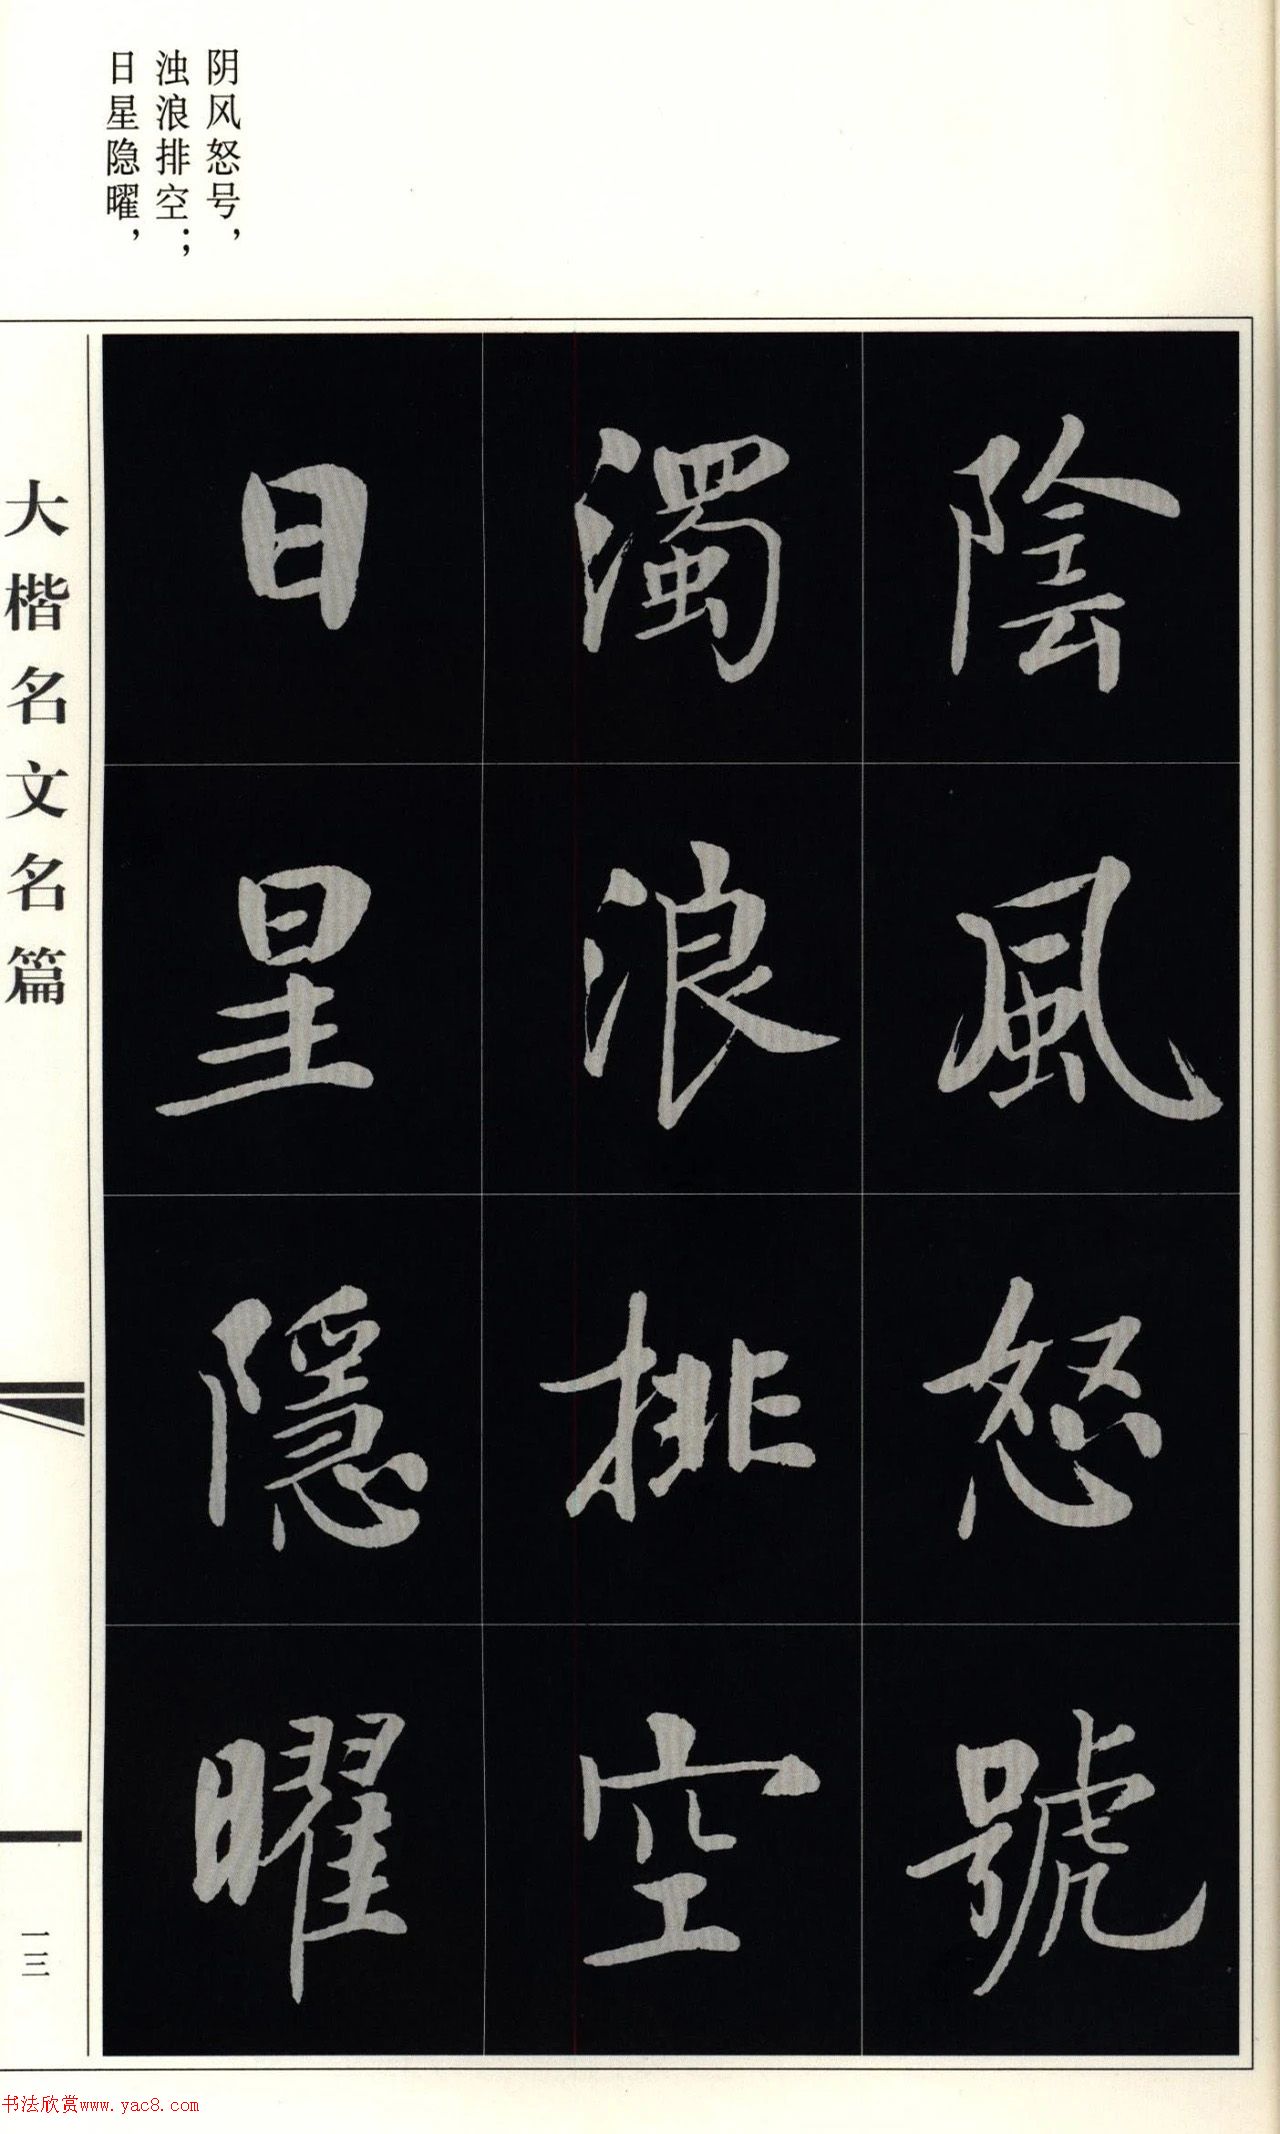 阴风怒号，
浊浪排空；
日星隐曜，
陰風怒號
濁浪排空
日星隱曜
大楷名文名篇
一三
书法欣赏www.yac8.com